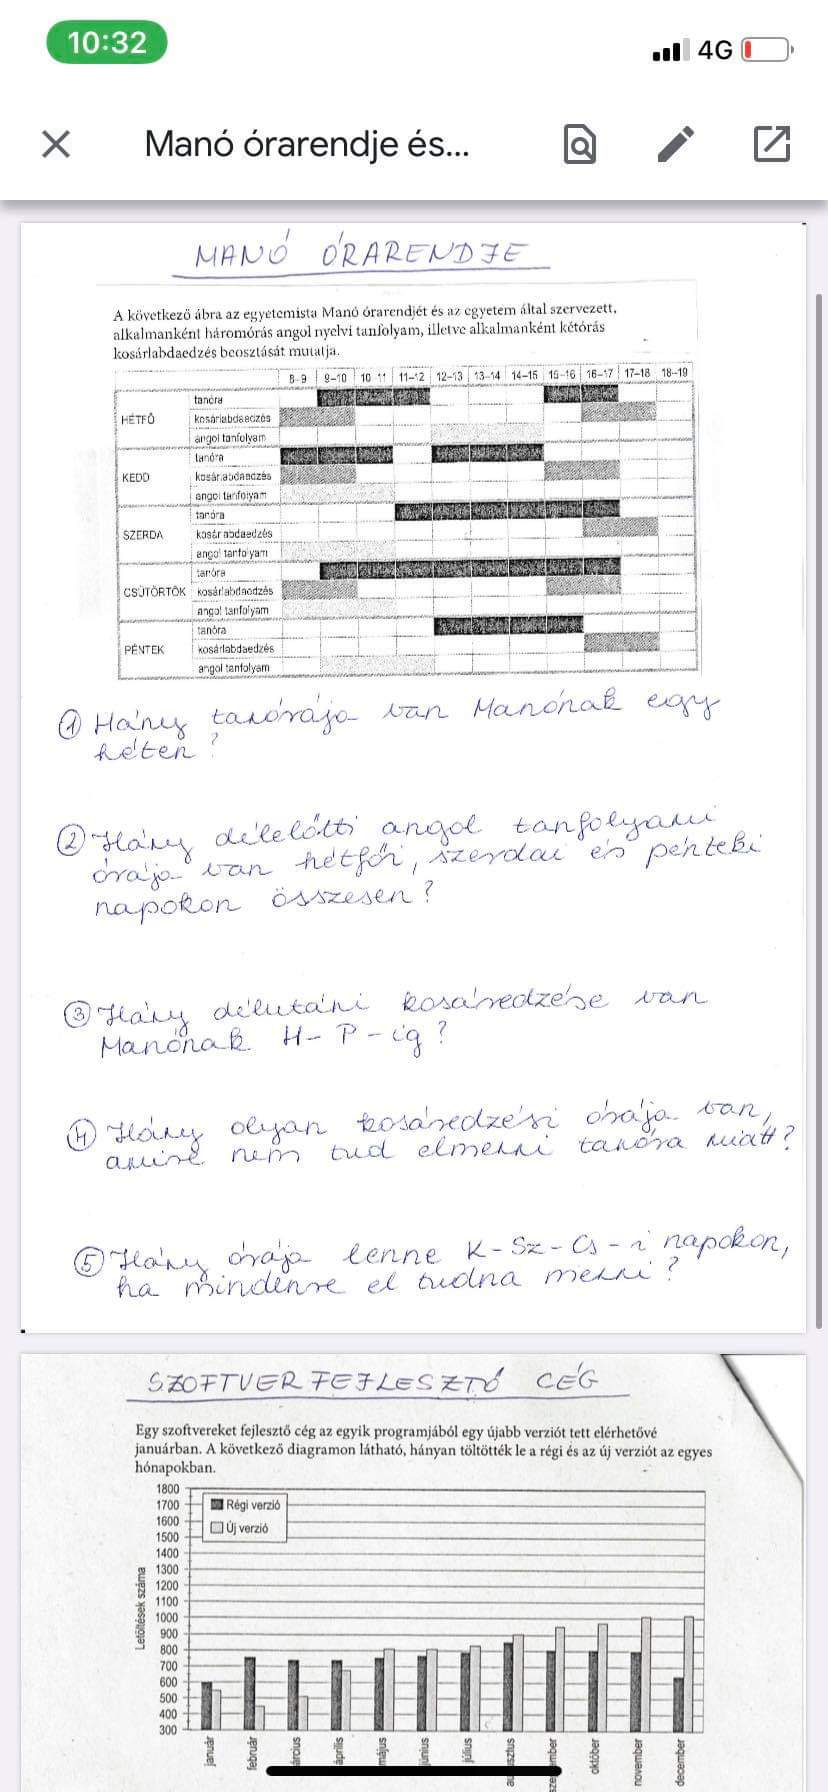 10:32
4G
Manó órarendje és...
MANÓ ÓRARENDJE
A következő ábra az egyetemista Manó órarendjét és az egyetem által szervezett,
alkalmanként háromórás angol nyelvi tanfolyam, illetve alkalmanként kétórás
kosárlabdaedzés beosztását mutatja.
8-9 9-10 10-11 11-12 12-13 13-14 14-15 15-16 16-17 17-18 18-19
HÉTFŐ
tanóra
kosárlabdaedzés
angol tanfolyam
KEDD
tanóra
kosárlabdaedzés
angol tanfolyam
SZERDA
tanóra
kosárlabdaedzés
angol tanfolyam
CSÜTÖRTÖK
tanóra
kosárlabdaedzés
angol tanfolyam
PÉNTEK
tanóra
kosárlabdaedzés
angol tanfolyam
① Hány tanórája van Manónak egy
héten?
② Hány délelőtti angol tanfolyami
órája van hétfői, szerdai és pénteki
napokon összesen?
③ Hány délutáni kosáredzése van
Manónak H-P-ig?
④ Hány olyan kosáredzési órája van,
amire nem tud elmenni tanóra miatt?
⑤ Hány órája lenne K-Sz-Cs-i napokon,
ha mindenre el tudna menni?
SZOFTVERFEJLESZTŐ CÉG
Egy szoftvereket fejlesztő cég az egyik programjából egy újabb verziót tett elérhetővé
januárban. A következő diagramon látható, hányan töltötték le a régi és az új verziót az egyes
hónapokban.
Letöltések száma
1800
1700
1600
1500
1400
1300
1200
1100
1000
900
800
700
600
500
400
300
Régi verzió
Új verzió
január
február
április
május
június
július
október
november
december